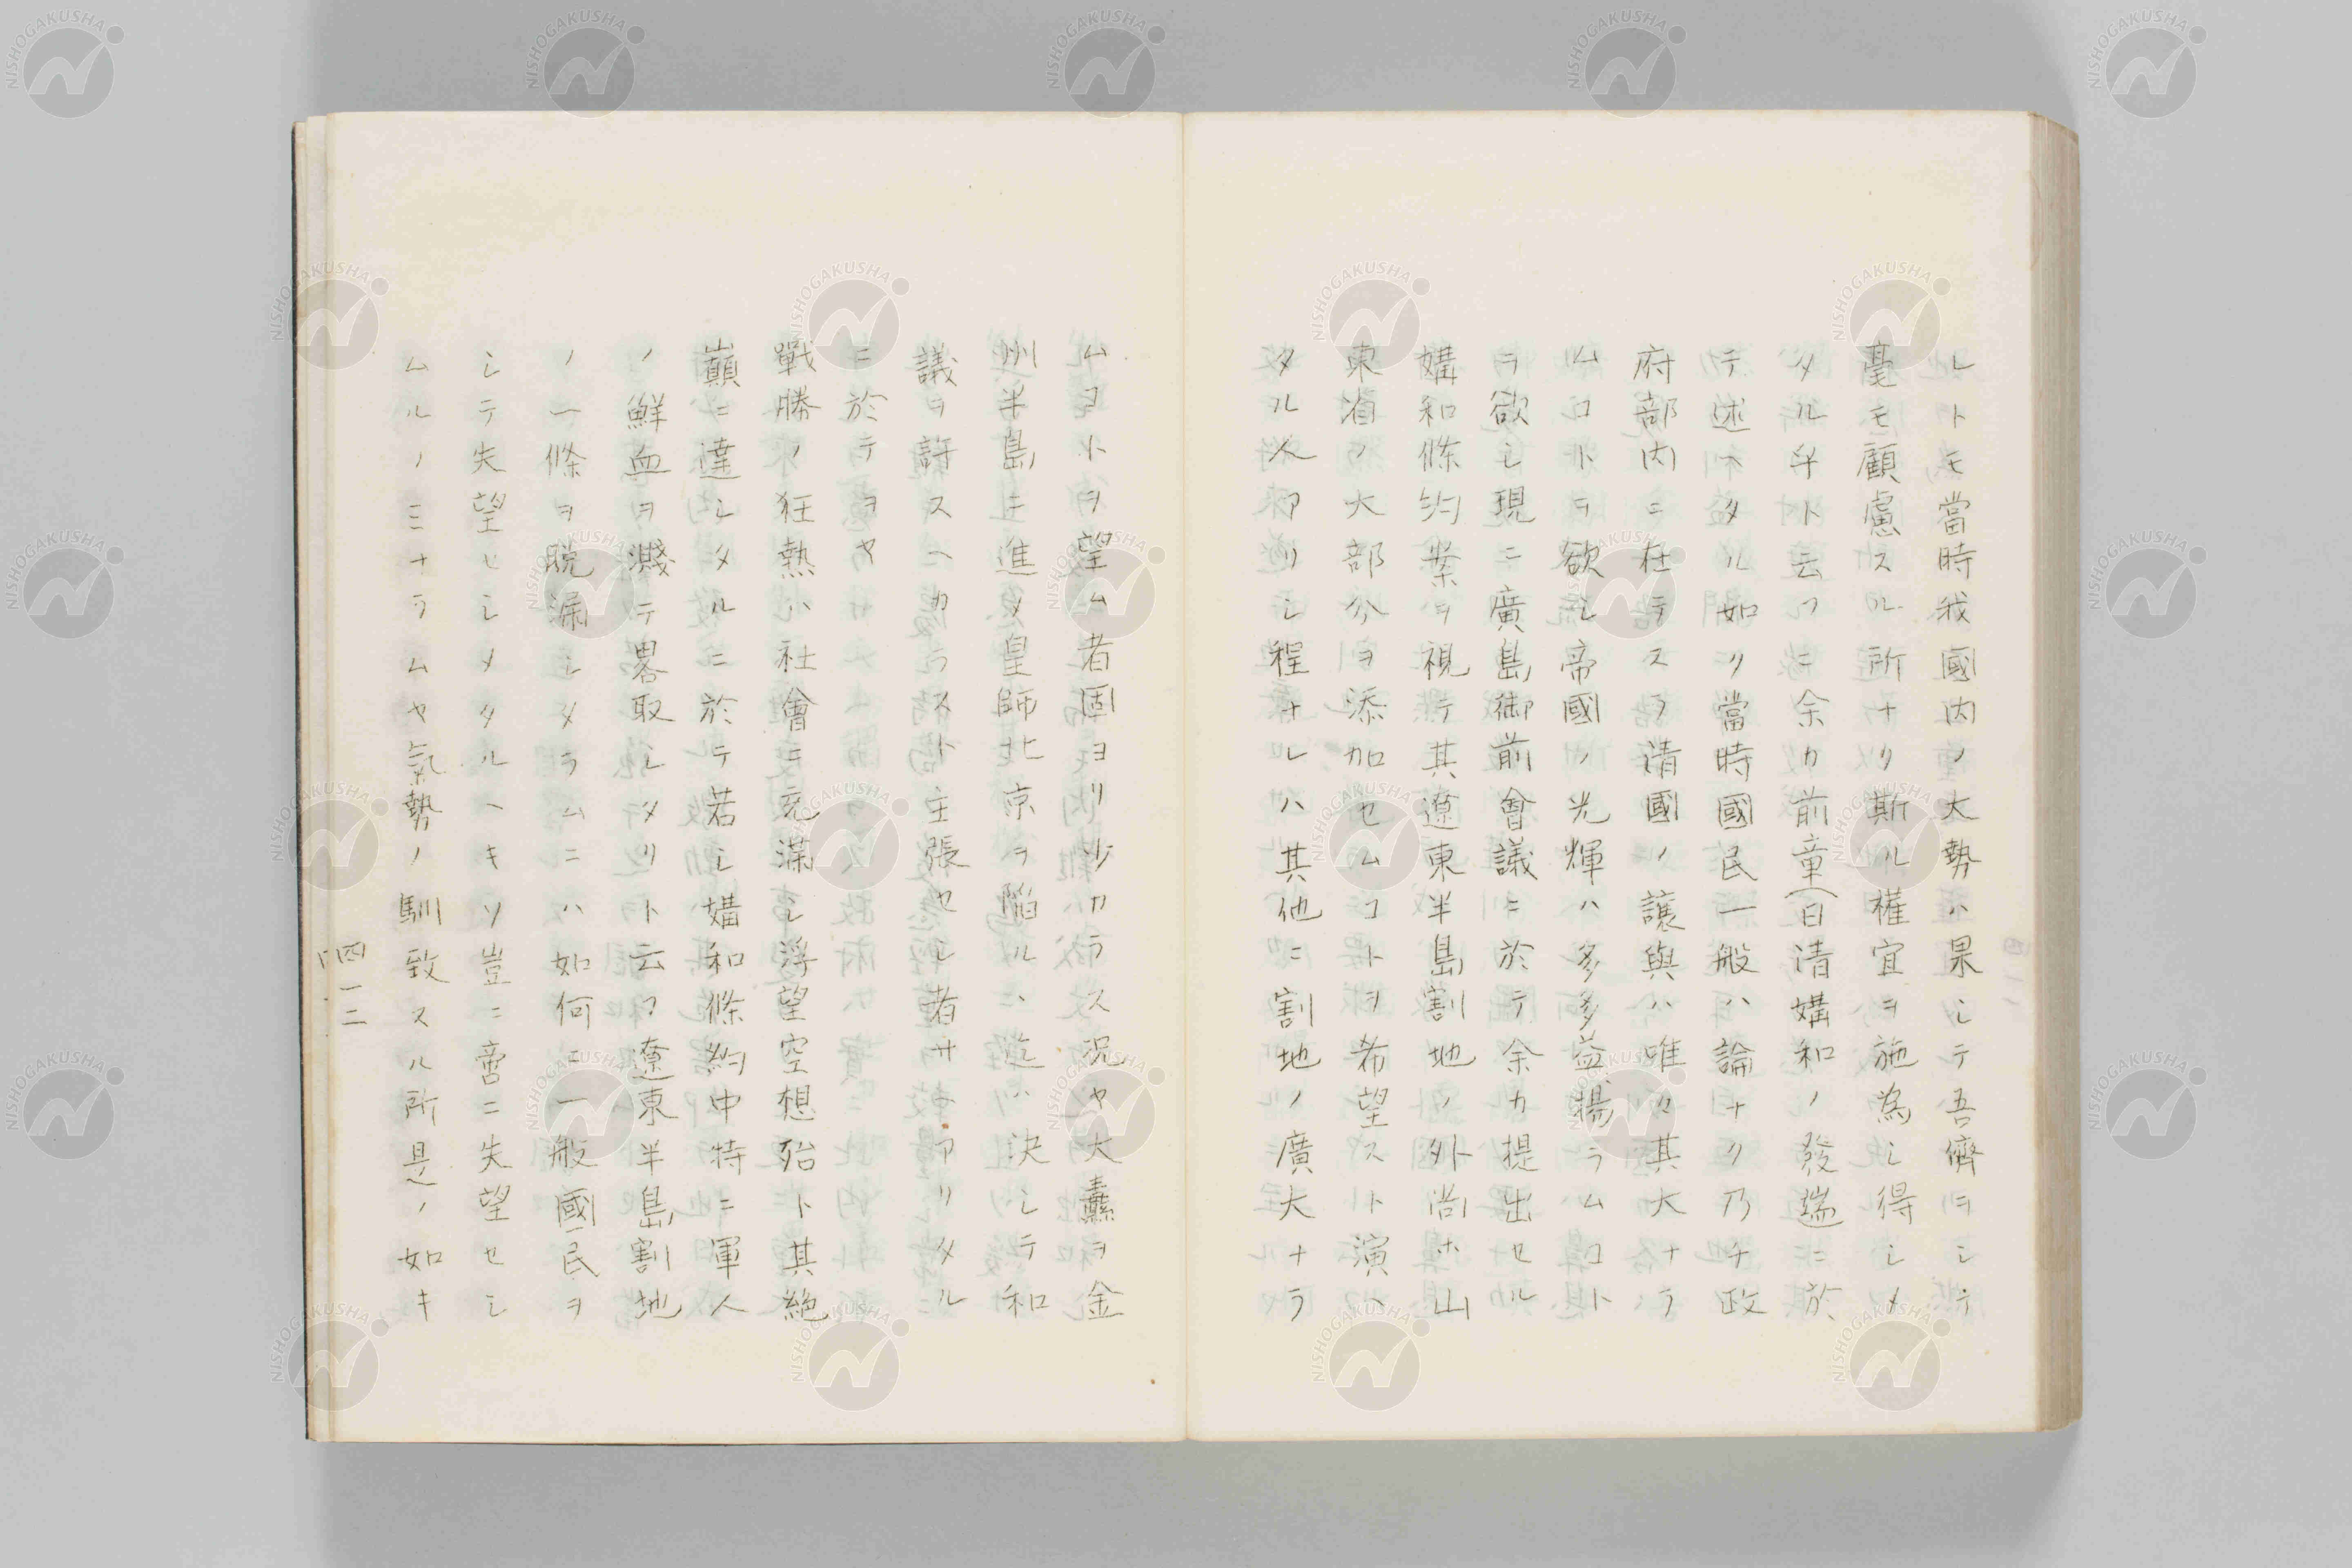 レトモ當時我國内ノ大勢ハ果シテ吾儕ヲシテ
毫モ顧慮スル所ナク斯ル權宜ヲ施為シ得シメ
タル乎ト云フニ余カ前章(日清媾和ノ發端ニ於
テ述ヘタル如ク當時國民一般ハ論ナク乃チ政
府部内ニ在テスラ清國ノ讓與ハ唯々其大ナラ
ムコトヲ欲シ帝國ノ光輝ハ多多益揚ラムコト
ヲ欲シ現ニ廣島御前會議ニ於テ余カ提出セル
媾和條約案ヲ視テ其遼東半島割地ノ外尚ホ山
東省ノ大部分ヲ添加セムコトヲ希望スト演ヘ
タル人アリシ程ナレハ其他ニ割地ノ廣大ナラ
ムコトヲ望ム者固ヨリ少カラス況ヤ大纛ヲ金
州半島ニ進メ皇師北京ヲ陷ルヽ迄ハ決シテ和
議ヲ許スヘカラスト主張セシ者サヘアリタル
ニ於テヲヤ
戰勝ノ狂熱ハ社會ニ充滿シ浮望空想殆ト其絶
巓ニ達シタルニ於テ若シ媾和條約中特ニ軍人
ノ鮮血ヲ濺テ畧取シタリト云フ遼東半島割地
ノ一條ヲ脱漏シタラムニハ如何ニ一般國民ヲ
シテ失望セシメタルヘキソ豈ニ啻ニ失望セシ
ムルノミナラムヤ氣勢ノ馴致スル所是ノ如キ
四一二
NISHOGAKUSHA